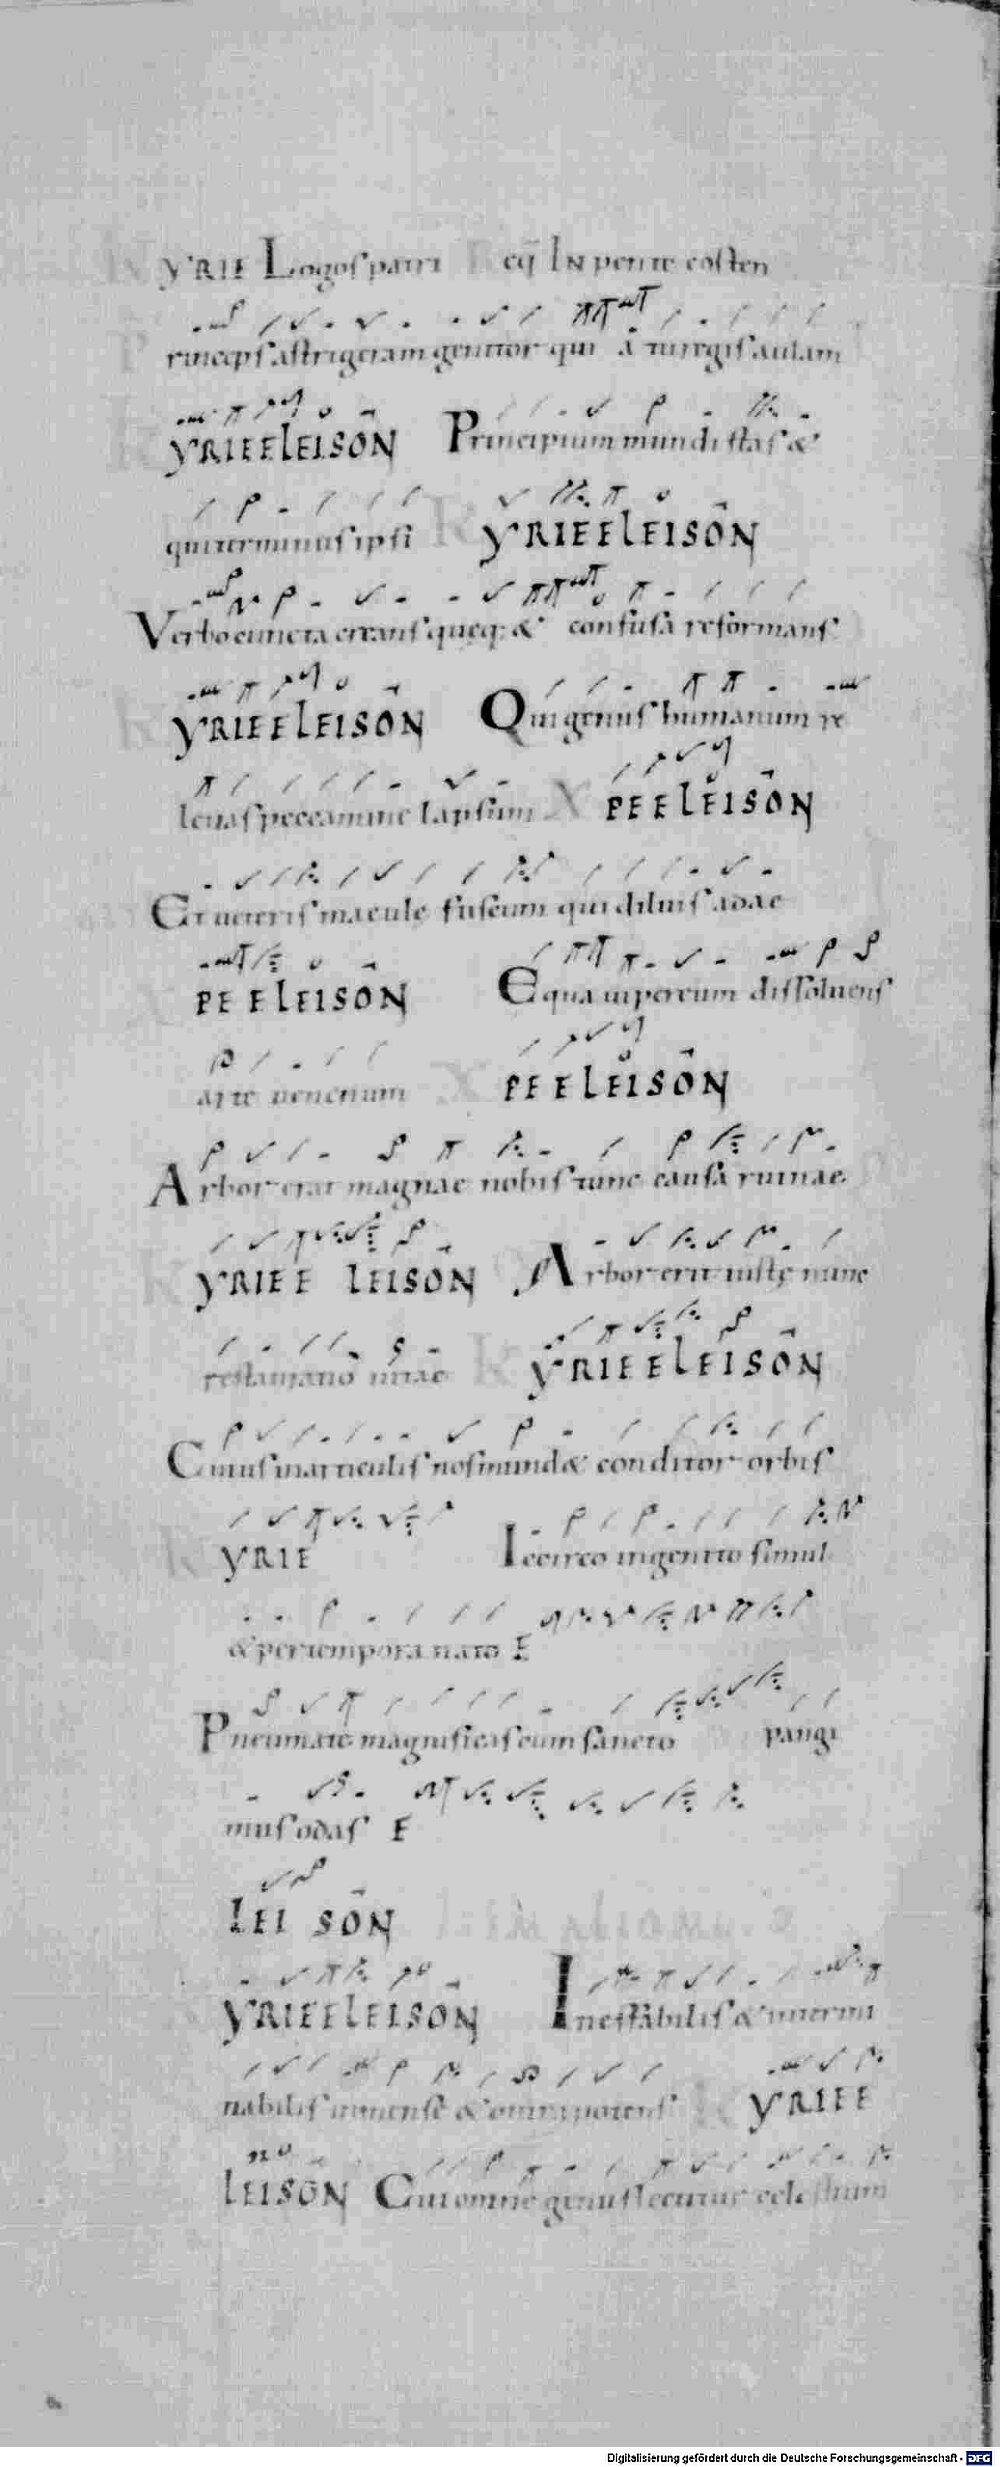 KYRIE Logos patri eq̅ IN pente costen
Princeps astrigeram genitor qui a turegis aulam
KYRIEELEISON Principium mundi stas &
qui terminus ipsi KYRIEELEISON
Verbo cuncta creans queq: & confusa reformans
KYRIEELEISON Qui genus humanum re
levas peccamine lapsum XPEELEISON
Et veteris macule fuscum qui diluis adae
PEELEISON Equa vipereum dissoluens
arte uenenum XPEELEISON
Arbor erat magnae nobis tunc causa ruinae
KYRIEE LEISON Arbor erit iustę nunc
KYRIEELEISON
Cuius inarticulis nos mund& conditor orbis
KYRIE Iccirco ingenito simul
& per tempora nato E
Pneumate magnificas cum sancto pangi
mus odas E
LEI SON
KYRIEELEISON Ineffabilis & intermi
nabilis immense & omnipotens KYRIEE
LEISON Cui omne genus celestium